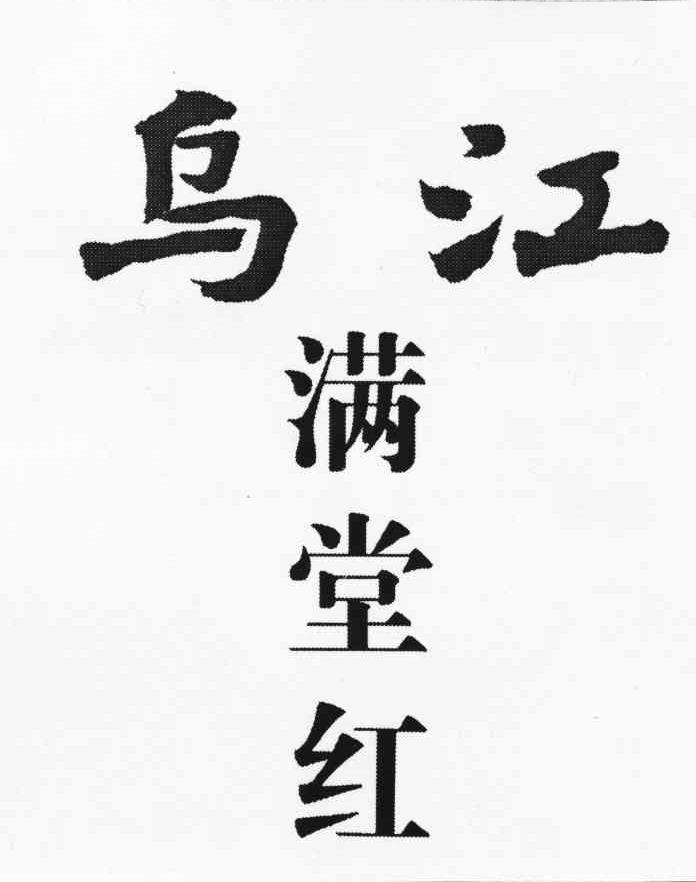 乌江
满
堂
红